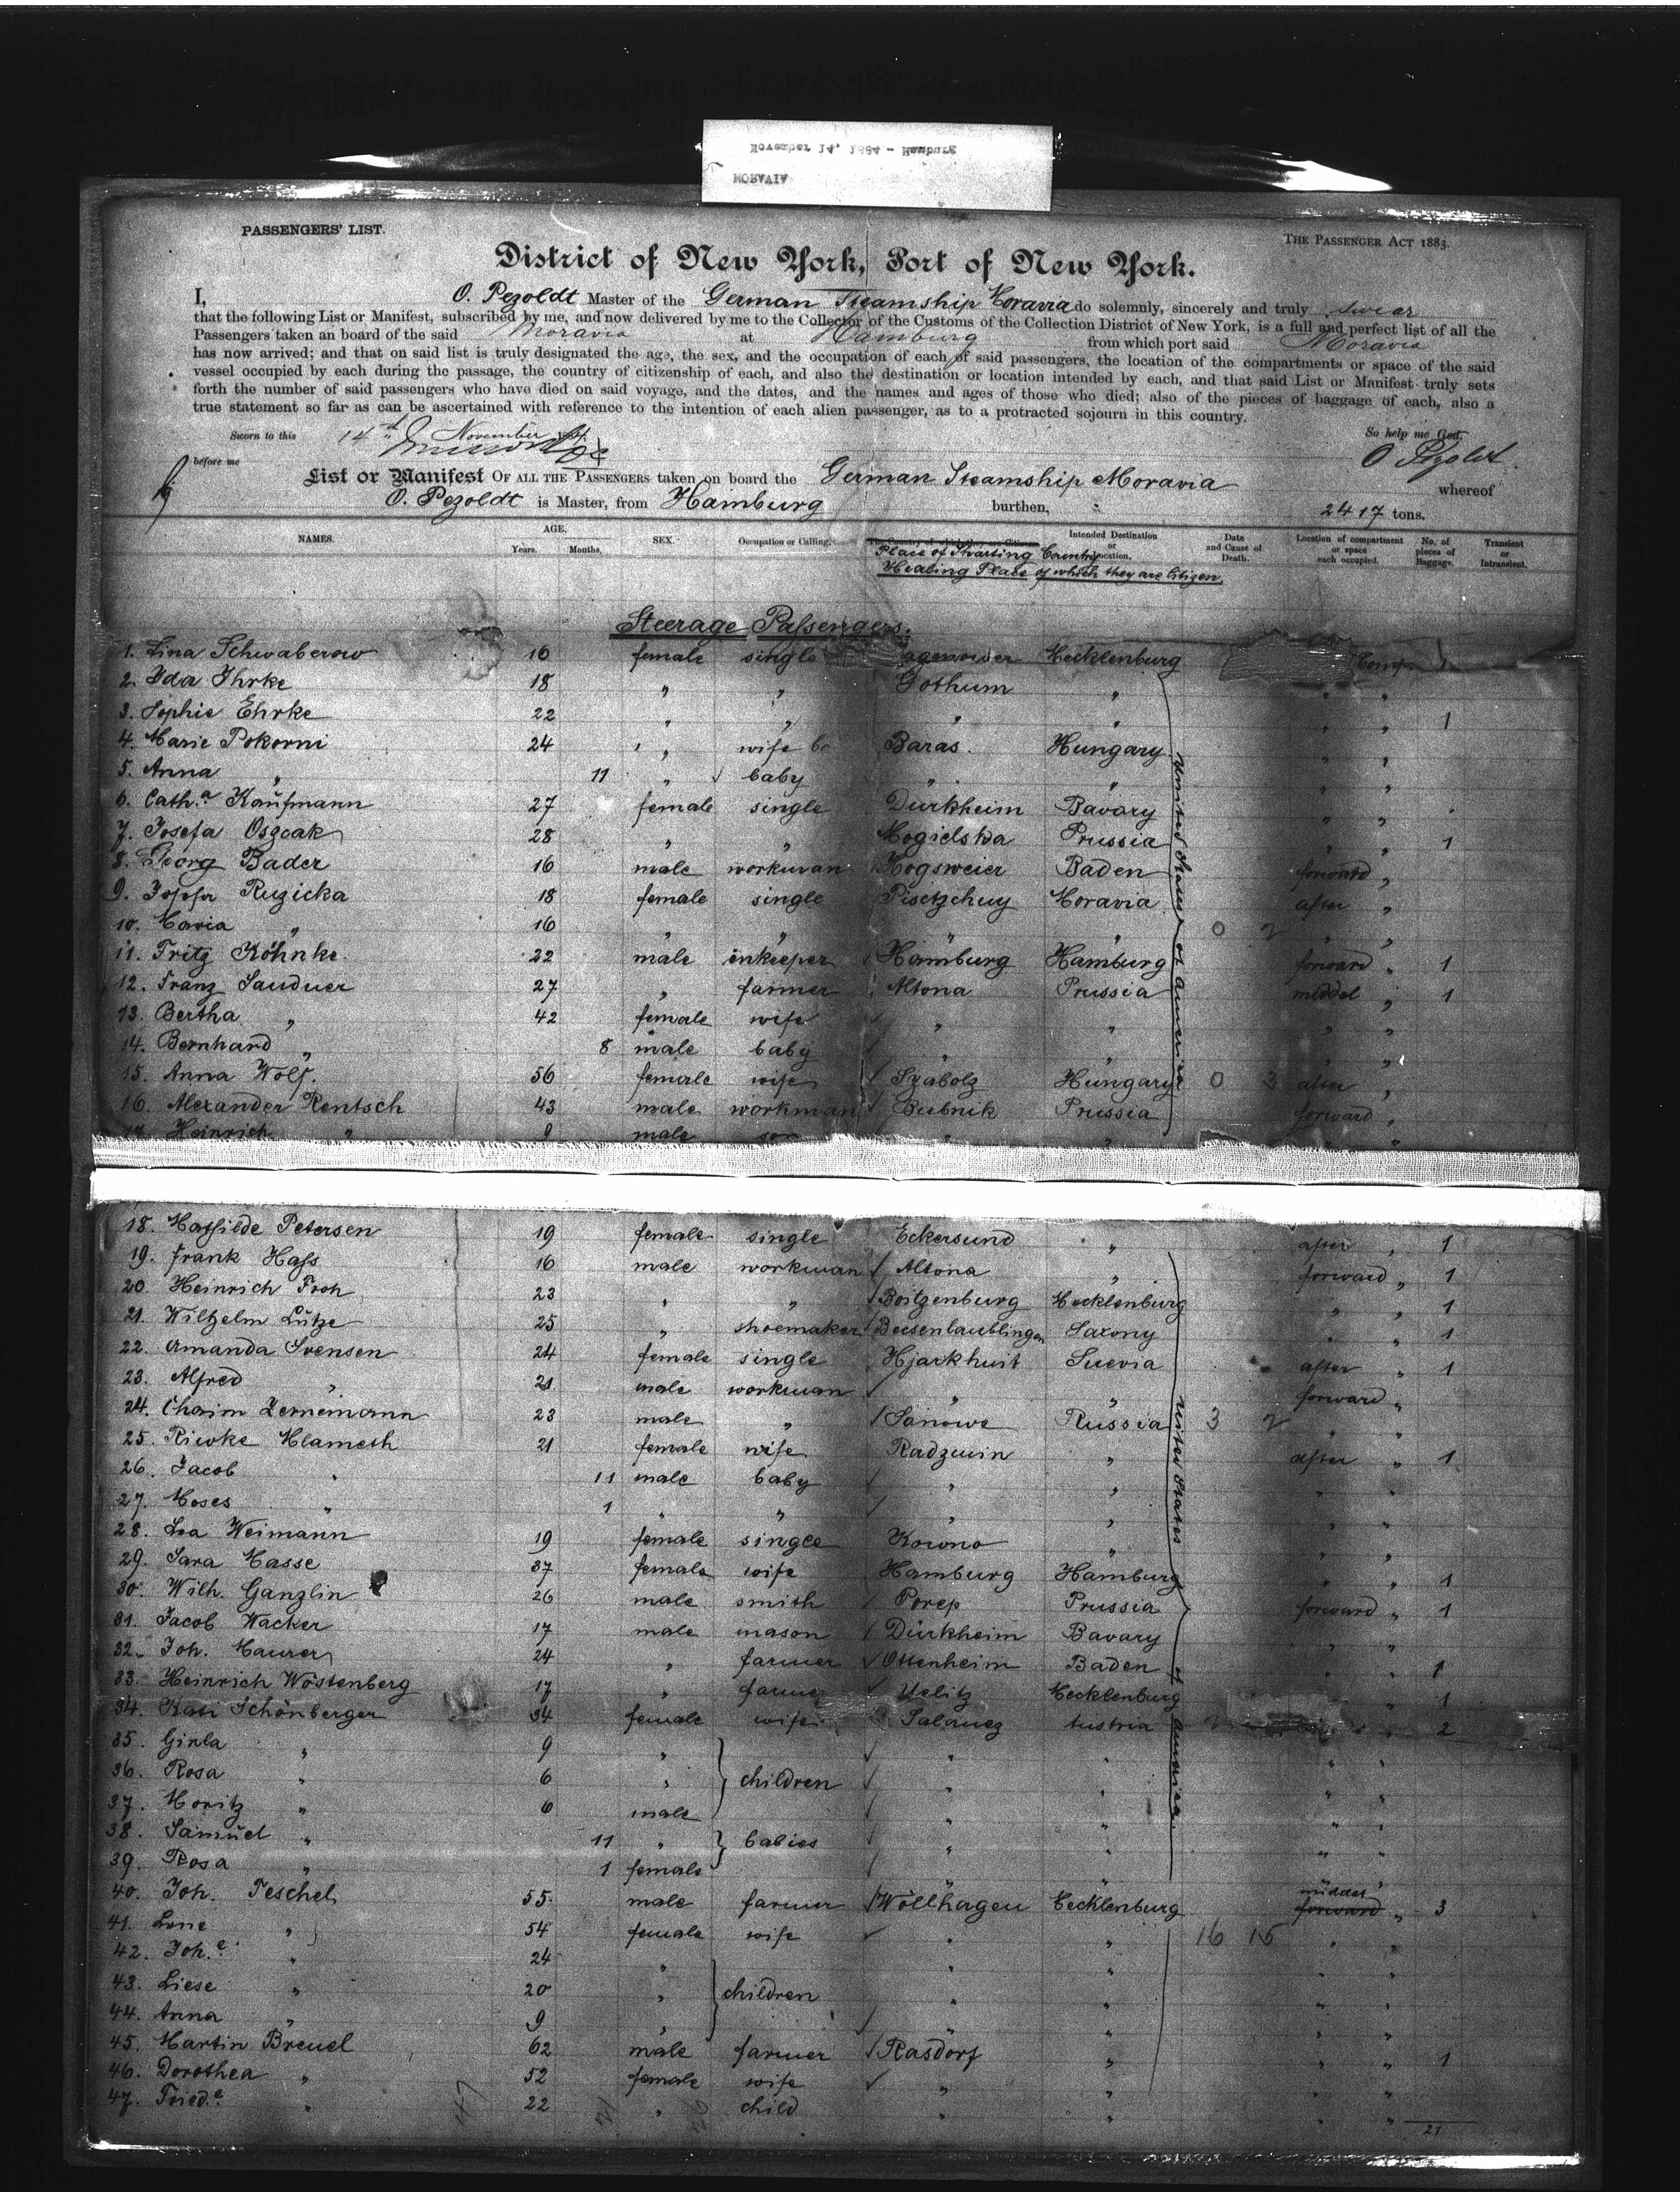 MORAVIA
November 14, 1884 - Hamburg
PASSENGERS' LIST.
THE PASSENGER ACT 1883.
District of New York, Port of New York.
I, O. Pezoldt Master of the German Steamship Moravia do solemnly, sincerely and truly swear
that the following List or Manifest, subscribed by me, and now delivered by me to the Collector of the Customs of the Collection District of New York, is a full and perfect list of all the
Passengers taken an board of the said Moravia at Hamburg from which port said Moravia
has now arrived; and that on said list is truly designated the age, the sex, and the occupation of each of said passengers, the location of the compartments or space of the said
vessel occupied by each during the passage, the country of citizenship of each, and also the destination or location intended by each, and that said List or Manifest truly sets
forth the number of said passengers who have died on said voyage, and the dates, and the names and ages of those who died; also of the pieces of baggage of each, also a
true statement so far as can be ascertained with reference to the intention of each alien passenger, as to a protracted sojourn in this country.
Sworn to this 14th November 1884 So help me God,
before me O Pezoldt
List or Manifest OF ALL THE PASSENGERS taken on board the German Steamship Moravia whereof
O. Pezoldt is Master, from Hamburg burthen, 2417 tons.
NAMES. AGE. Years. Months. SEX. Occupation or Calling. The Country of which they are Citizens. Intended Destination or Location. Date and Cause of Death. Location of compartment or space each occupied. No. of pieces of Baggage. Transient or Intransient.
Place of Starting Country
Healing Place of which they are Citizen
Steerage Passengers.
1. Lina Schwaberow 16 female single Mecklenburg Comp. 1
2. Ida Ihrke 18 " " Gothum " " "
3. Sophie Ehrke 22 " " " " " " 1
4. Marie Pokorni 24 " wife Baras. Hungary " "
5. Anna " 11 " baby " " " "
6. Cath.a Kaufmann 27 female single Dürkheim Bavary " "
7. Josefa Oszcak 28 " " Mogielska Prussia " " 1
8. Georg Bader 16 male workman Hogsweier Baden forward "
9. Josefa Ruzicka 18 female single Pisetzchuy Moravia after "
10. Maria " 16 " " " " 0 2 " "
11. Fritz Köhnke 22 male inkeeper Hamburg Hamburg forward " 1
12. Franz Sauduer 27 " farmer Altona Prussia middel " 1
13. Bertha " 42 female wife " " " "
14. Bernhard " 8 male baby " " " "
15. Anna Wolf. 56 female wife Szabolz Hungary 0 3 after "
16. Alexander Rentsch 43 male workman Bubnik Prussia forward "
17. Heinrich " 9 male son " " " "
United States of America
18. Mathilde Petersen 19 female single Eckersund " after " 1
19. Frank Hass 16 male workman Altona " forward " 1
20. Heinrich Froh 23 " " Boitzenburg Mecklenburg " " 1
21. Wilhelm Lütze 25 " shoemaker Beesenlaublingen Saxony " " 1
22. Amanda Svensen 24 female single Hjarkhuit Suevia after " 1
23. Alfred " 21 male workman " " forward "
24. Chaim Zernemann 23 male " Sanowe Russia 3 2 " "
25. Riwke Mlameth 21 female wife Radzuin " after " 1
26. Jacob " 11 male baby " " " "
27. Moses " 1 " " " " " "
28. Lea Weimann 19 female single Kowno " " "
29. Sara Masse 37 female wife Hamburg Hamburg " " 1
30. Wilh. Ganzlin 26 male smith Porep Prussia forward " 1
31. Jacob Wacker 17 male mason Dürkheim Bavary " "
32. Joh. Maurer 24 " farmer Ottenheim Baden " " 1
33. Heinrich Wöstenberg 17 " farmer Uelitz Mecklenburg " " 1
34. Kati Schönberger 34 female wife Salancz Austria " 2
35. Ginla " 9 " " " " "
36. Rosa " 6 " children " " " "
37. Moritz " 6 male " " " "
38. Samuel " 11 " babies " " " "
39. Rosa " 1 female " " " "
United States of America
40. Joh. Teschel 55 male farmer Wöllhagen Mecklenburg middel forward " 3
41. Lone " 54 female wife " " 16 15 " "
42. Joh.e " 24 " " " " "
43. Liese " 20 " children " " " "
44. Anna " 9 " " " " "
45. Martin Breuel 62 male farmer Rasdorf " " " 1
46. Dorothea " 52 female wife " " " "
47. Fried.e " 22 " child " " " "
47 21